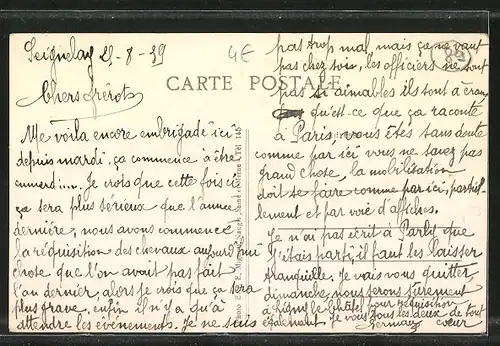 Seignelay 25-8-39
4€
CARTE POSTALE
Chers frérots
Me voilà encore embrigadé ici
depuis mardi, ça commence à être
emmerd.... Je crois que cette fois ici
ça sera plus sérieux que l'année
dernière, nous avons commencé
la réquisition des chevaux aujourd'hui
chose que l'on avait pas fait
l'an dernier, alors je crois que ça sera
plus grave, enfin il n'y a qu'à
attendre les évènements. Je ne suis
pas trop mal, mais ça ne vaut
pas chez soi, les officiers ne sont
pas si aimables ils sont à cran
qu'est-ce que ça raconte
à Paris, vous êtes sans doute
comme par ici vous ne savez pas
grand chose, la mobilisation
doit se faire comme par ici, partiel-
lement et par voie d'affiches.
Je n'ai pas écrit à Parly que
j'étais parti, il faut les laisser
tranquille. Je vais vous quitter
dimanche, nous serons sûrement
à Ligny le Châtel pour réquisition
également Je vous tous les deux de tout
Germain cœur